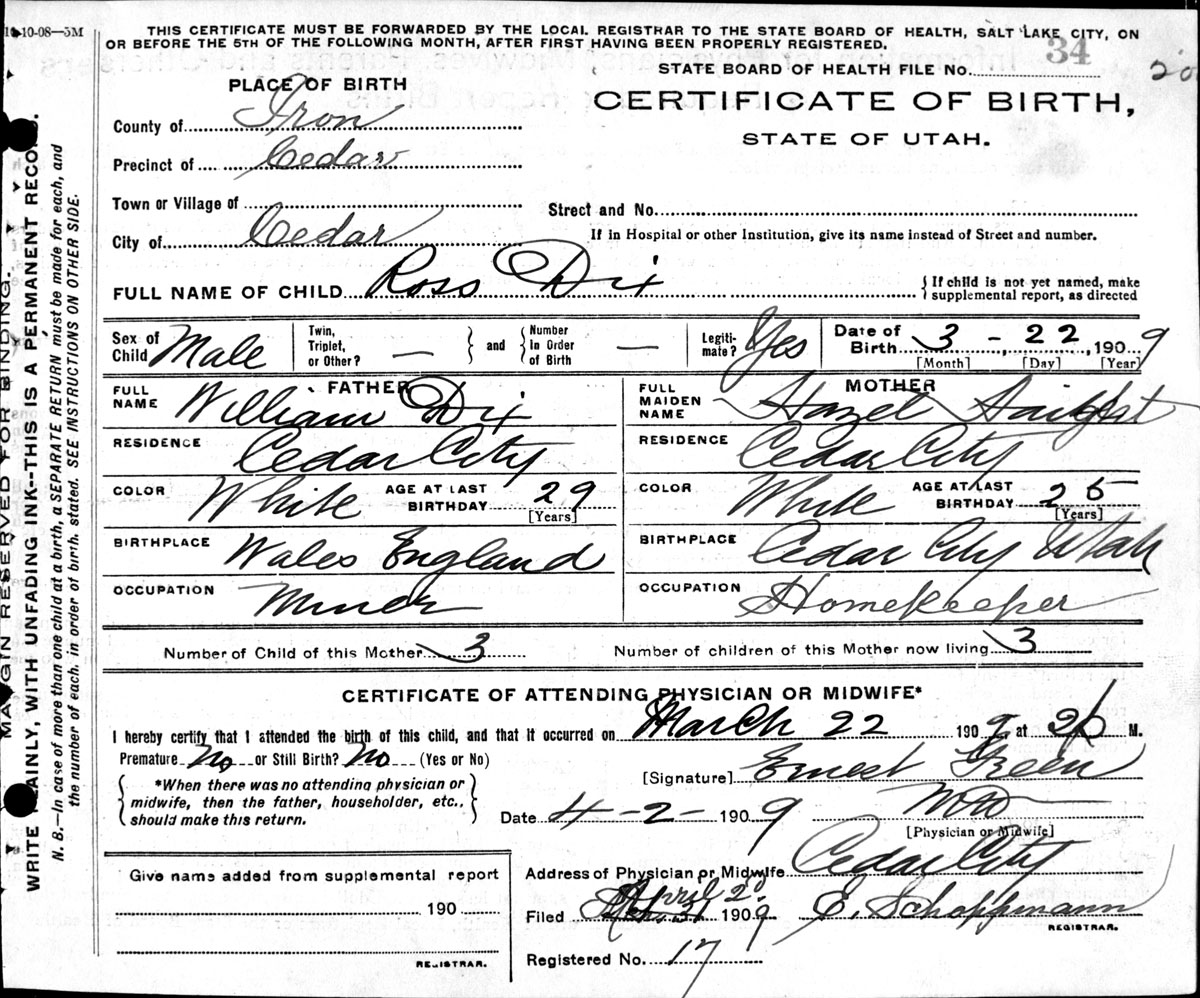 10-10-08—5M
THIS CERTIFICATE MUST BE FORWARDED BY THE LOCAL REGISTRAR TO THE STATE BOARD OF HEALTH, SALT LAKE CITY, ON
OR BEFORE THE 5TH OF THE FOLLOWING MONTH, AFTER FIRST HAVING BEEN PROPERLY REGISTERED.
34
STATE BOARD OF HEALTH FILE No.
20
PLACE OF BIRTH
CERTIFICATE OF BIRTH,
STATE OF UTAH.
County of Iron
Precinct of Cedar
Town or Village of
Street and No.
City of Cedar
If in Hospital or other Institution, give its name instead of Street and number.
FULL NAME OF CHILD Ross Dix
{If child is not yet named, make
supplemental report, as directed
Sex of Child Male
Twin, Triplet, or Other? —
} and {
Number In Order of Birth —
Legiti-mate? Yes
Date of Birth 3 - 22, 1909
[Month] [Day] [Year]
FATHER
FULL NAME William Dix
RESIDENCE Cedar City
COLOR White AGE AT LAST BIRTHDAY 29
[Years]
BIRTHPLACE Wales England
OCCUPATION Miner
MOTHER
FULL MAIDEN NAME Hazel Haight
RESIDENCE Cedar City
COLOR White AGE AT LAST BIRTHDAY 25
[Years]
BIRTHPLACE Cedar City Utah
OCCUPATION Homekeeper
Number of Child of this Mother 3
Number of children of this Mother now living 3
CERTIFICATE OF ATTENDING PHYSICIAN OR MIDWIFE*
I hereby certify that I attended the birth of this child, and that it occurred on March 22 1909, at 2 M.
Premature No or Still Birth? No (Yes or No)
[Signature] Ernest Green
{*When there was no attending physician or
midwife, then the father, householder, etc.,
should make this return.}
Date 4-2- 1909
[Physician or Midwife]
Give name added from supplemental report
190
REGISTRAR.
Address of Physician or Midwife Cedar City
Filed April 2d 1909 E. Schoppmann
REGISTRAR.
Registered No. 17
MARGIN RESERVED FOR BINDING.
WRITE PLAINLY, WITH UNFADING INK---THIS IS A PERMANENT RECORD.
N. B.—In case of more than one child at a birth, a SEPARATE RETURN must be made for each, and
the number of each, in order of birth, stated. SEE INSTRUCTIONS ON OTHER SIDE.